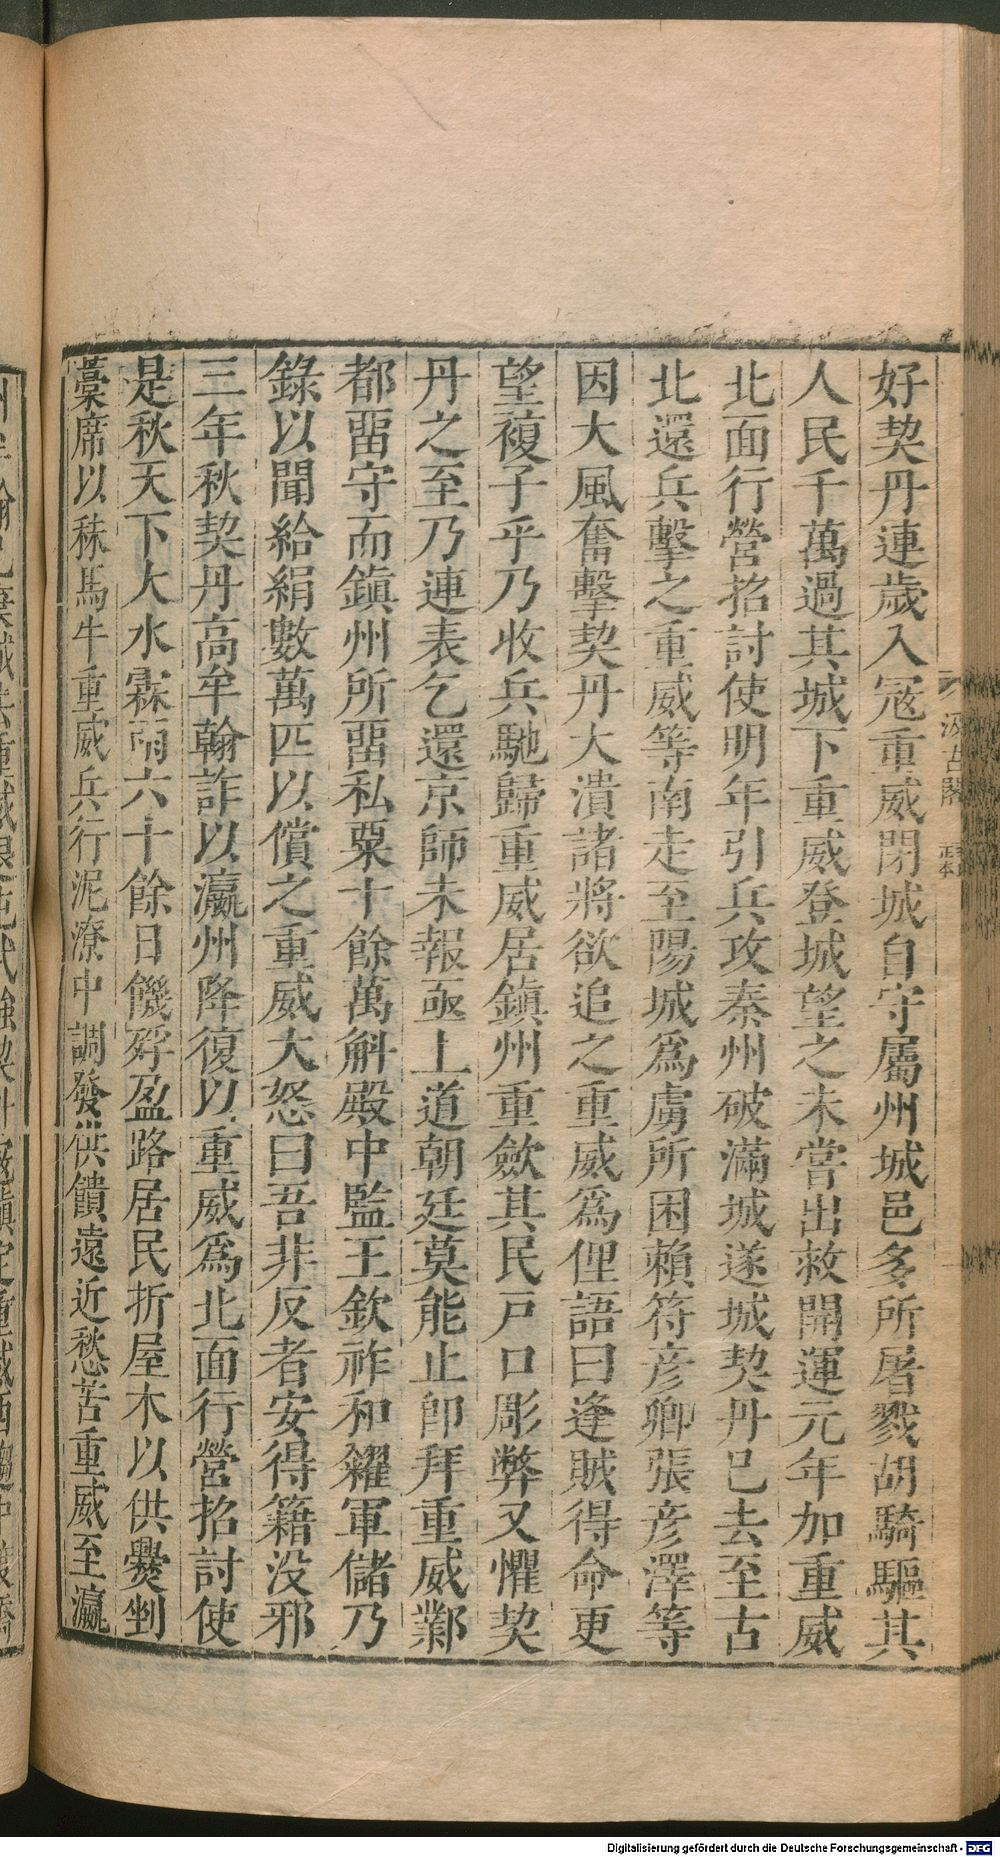 好契丹連歲入冦重威閉城自守屬州城邑多所屠戮胡騎驅其
人民千萬過其城下重威登城望之未嘗出救開運元年加重威
北面行營招討使明年引兵攻秦州破滿城遂城契丹已去至古
北還兵擊之重威等南走至陽城爲虜所困賴符彥卿張彥澤等
因大風奮擊契丹大潰諸將欲追之重威爲俚語曰逢賊得命更
望複子乎乃收兵馳歸重威居鎮州重歛其民戸口彫弊又懼契
丹之至乃連表乞還京師未報亟上道朝廷莫能止卽拜重威鄴
都畱守而鎮州所畱私粟十餘萬斛殿中監王欽祚和糴軍儲乃
錄以聞給絹數萬匹以償之重威大怒曰吾非反者安得籍没邪
三年秋契丹高牟翰詐以瀛州降復以重威爲北面行營招討使
是秋天下大水霖雨六十餘日饑殍盈路居民折屋木以供爨剉
藁席以秣馬牛重威兵行泥潦中調發供饋遠近愁苦重威至瀛
汲古閣
Digitalisierung gefördert durch die Deutsche Forschungsgemeinschaft - DFG